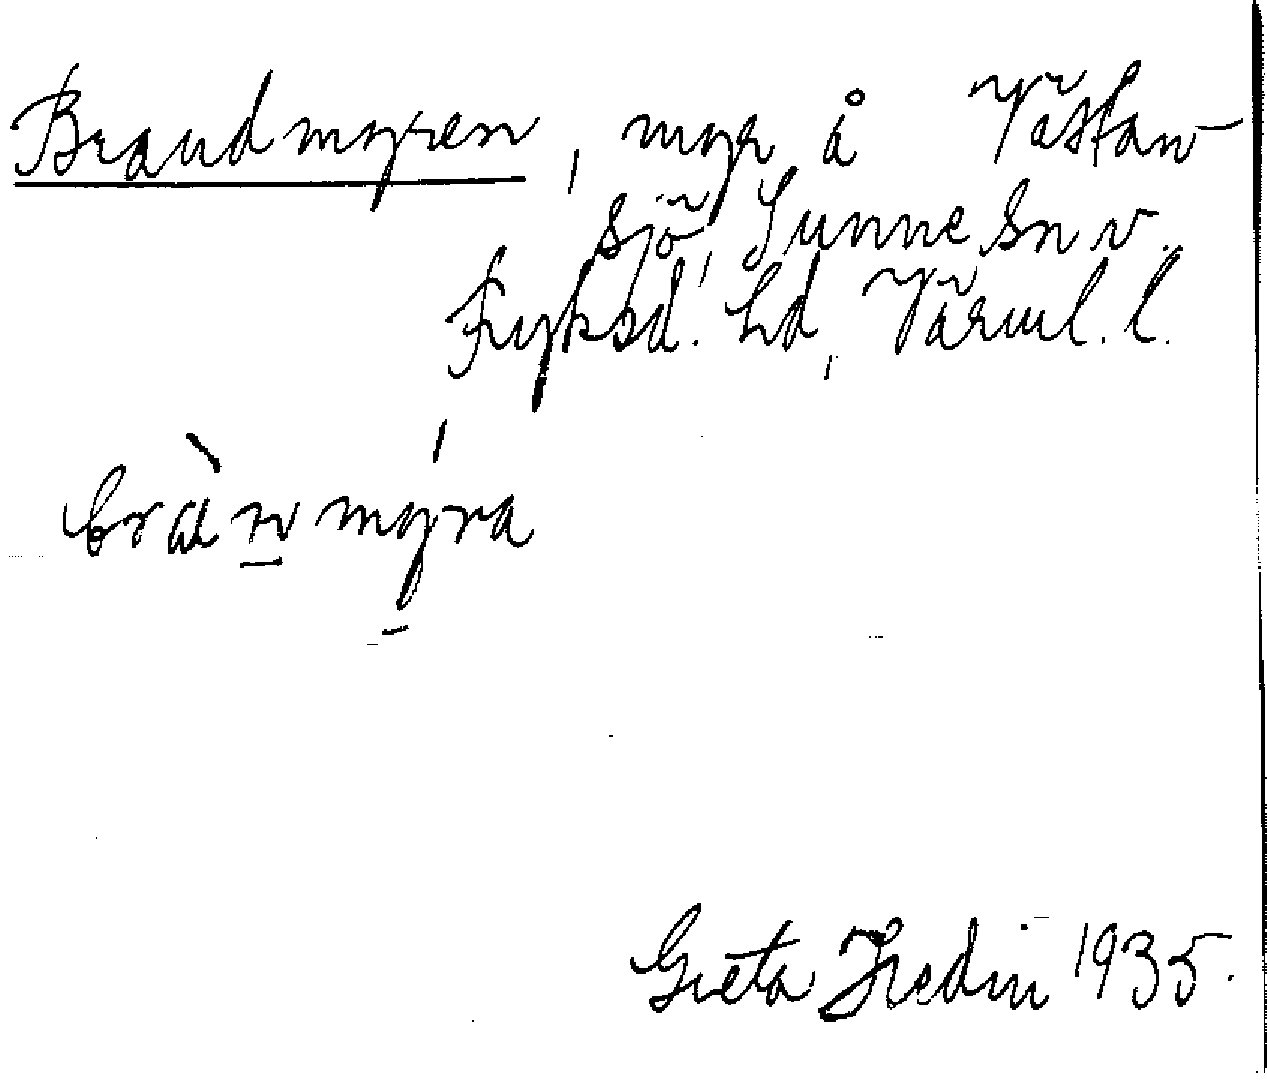 Brandmyren, myr å Västan-
sjö, Sunne sn v.
Fryksd. hd, Värml. l.
bràn myra
Greta Hedin 1935.